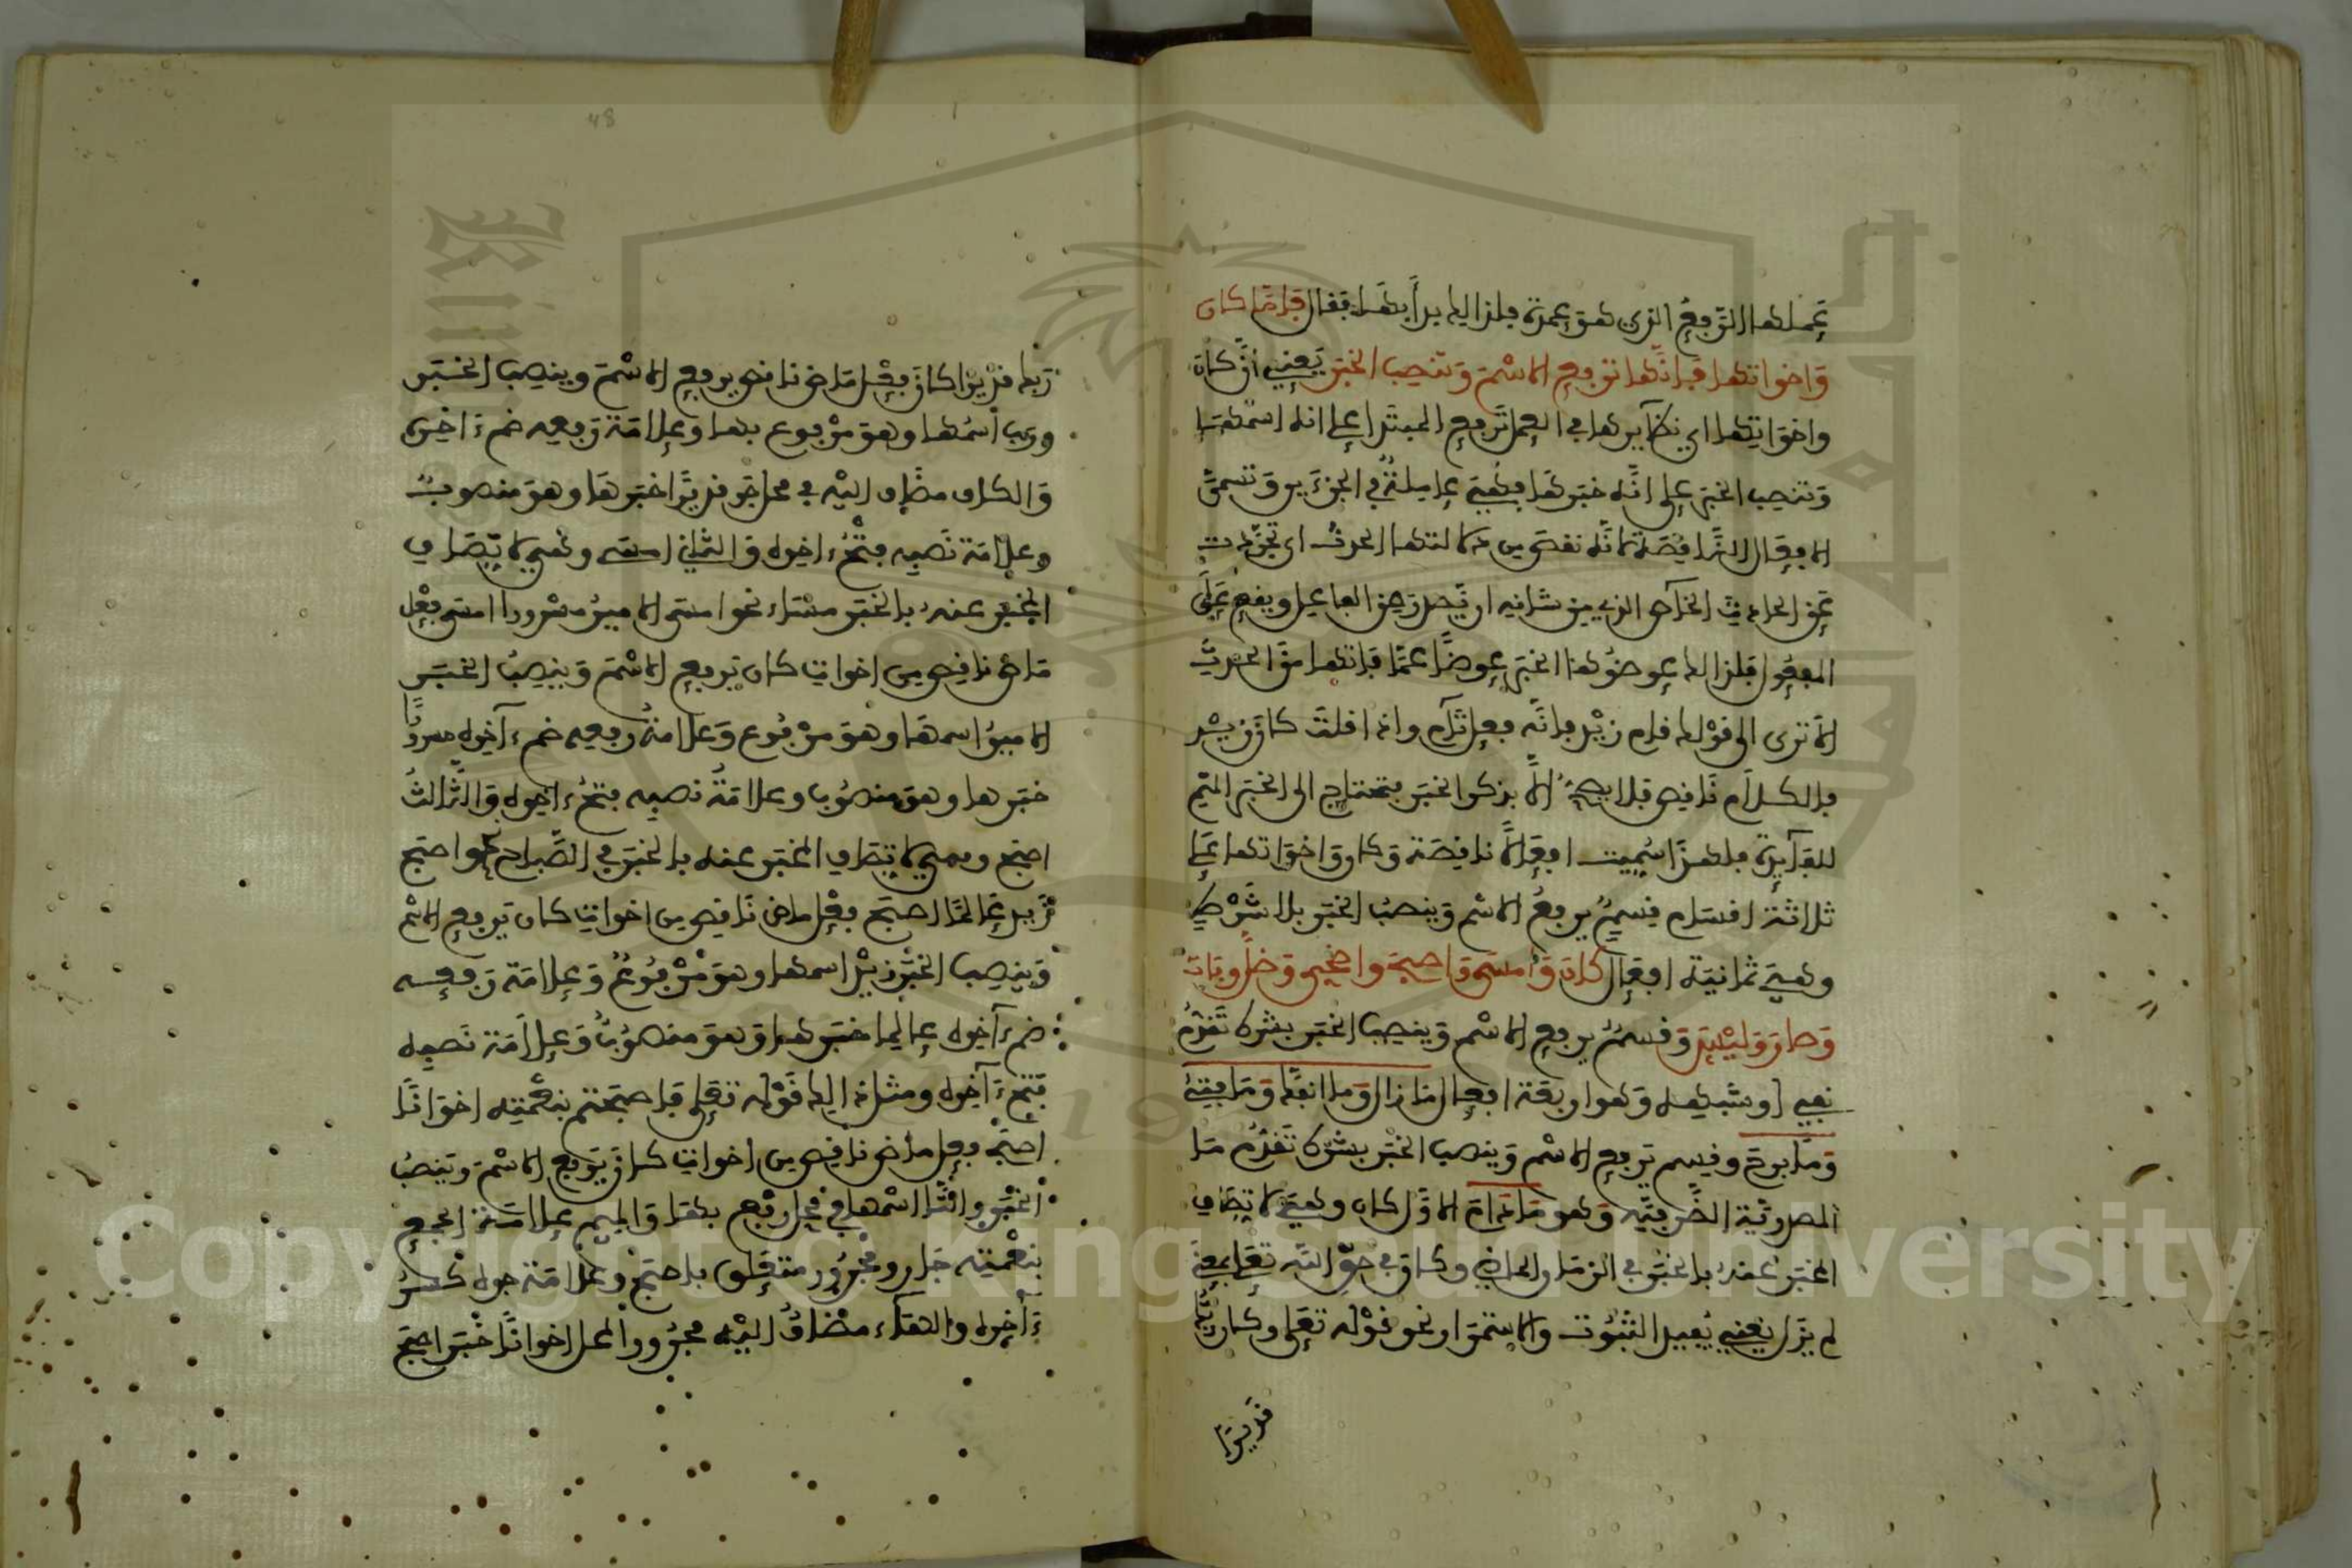 عملها الرفع الذي هو عمدة فلذالك بدأ بها فقال فاما كان
واخواتها فإنها ترفع الاسم وتنصب الخبر يعني أن كان
واخواتها اي نظايرها في العمل ترفع المبتدا على انه اسمها
وتنصب الخبر على انه خبرها فهي عاملة في الجزءين وتسمى
الافعال الناقصة لانه نقص من دلالتها الحدث اي تجردت
عن الحدث الخاص الذي من شانه ان يصدر من الفاعل ويقع على
المفعول فلذالك عوضوها الخبر عوضا عما فاتها من الحدث
الا ترى الى قولك قام زيد فانه فعل تام واذا قلت كان زيد
فالكلام ناقص فلا يصح الا بذكر الخبر فتحتاج الى الخبر المتم
للفايدة فلهذا سميت افعالا ناقصة وكان واخواتها على
ثلاثة اقسام قسم يرفع الاسم وينصب الخبر بلا شرط
وهي ثمانية افعال كان وامسى واصبح واضحى وظل وبات
وصار وليس وقسم يرفع الاسم وينصب الخبر بشرط تقدم
نفي او شبهه وهو اربعة افعال ما زال وما انفك وما فتئ
وما برح وقسم يرفع الاسم وينصب الخبر بشرط تقدم ما
المصدرية الظرفية وهو ما دام الاول كان وهي لاتصاف
المخبر عنه بالخبر في الزمان الماضي وكان في حق الله تعلى بمعنى
لم يزل يعني يفيد الثبوت والاستمرار نحو قوله تعلى وكان
قديرا
ربك قديرا كان فعل ماض ناقص يرفع الاسم وينصب الخبر
ورب اسمها وهو مرفوع بها وعلامة رفعه ضم ءاخره
والكاف مضاف اليه في محل جر قديرا خبرها وهو منصوب
وعلامة نصبه فتح ءاخره والثاني امسى وهي لاتصاف
المخبر عنه بالخبر مساء نحو امسى الامير مسرورا امسى فعل
ماض ناقص من اخوات كان يرفع الاسم وينصب الخبر
الامير اسمها وهو مرفوع وعلامة رفعه ضم ءاخره مسرورا
خبرها وهو منصوب وعلامة نصبه فتح ءاخره والثالث
اصبح وهي لاتصاف المخبر عنه بالخبر في الصباح نحو اصبح
زيد عالما اصبح فعل ماض ناقص من اخوات كان يرفع الاسم
وينصب الخبر زيد اسمها وهو مرفوع وعلامة رفعه
ضم ءاخره عالما خبرها وهو منصوب وعلامة نصبه
فتح ءاخره ومثل ذالك قوله تعلى فاصبحتم بنعمته اخوانا
اصبح فعل ماض ناقص من اخوات كان يرفع الاسم وينصب
الخبر والتا اسمها في محل رفع بها والميم علامة الجمع
بنعمته جار ومجرور متعلق باصبح وعلامة جره كسر
ءاخره والهاء مضاف اليه مجرور المحل اخوانا خبر اصبح
48